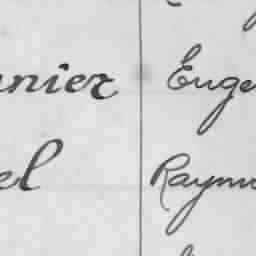 nier Euge
el Raym